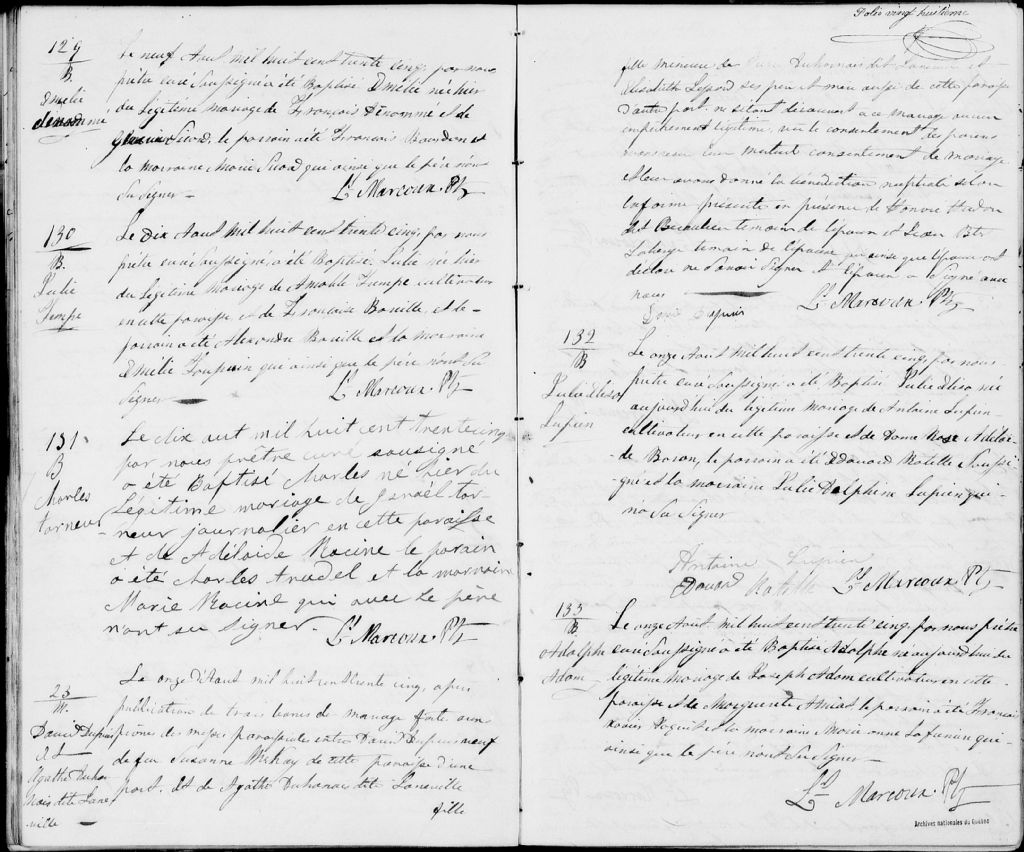 129
B.
Emélie
denommé
Le neuf Aout mil huit cent trente cinq, par nous
prêtre curé Soussigné a été Baptisé Emélie née hier
du Légitime mariage de François Dénommé et de
Sicard, le parrain a été Francois Bourdon et
la marraine Marie Sicard qui ainsi que le père n'ont
Su Signer
Ls Marcoux. Ptr
130
B.
Julie
Trempe
Le Dix Aout mil huit cent trente cinq, par nous
prêtre curé Soussigné, a été Baptisé Julie née hier
du Légitime mariage de Amable Trempe cultivateur
en cette paroisse, et de Francoise Bareille, et le
parrain a été Alexandre Bareille et la marraine
Emélie Loupuin qui ainsi que le père n'ont Su
Signer
Ls Marcoux. Ptr
131
B
Charles
torneur
Le dix aut mil huit cent trente cinq
par nous prêtre curé sousigné
a été Baptisé Charles né hier du
Légitime mariage de Ganaél tor-
neur journalier en cette paroisse
et de Adélaide Racine le parain
a été charles trudel et la marraine
Marie Racine qui avec le père
n'ont su signer
Ls Marcoux. Ptr
25
M.
David Dupuis
Et
Agathe Duhar
nais dite Lane
ville
Le onze d'Aout mil huit cent trente cinq, après
publication de trois bans de mariage faite aux
prônes des messes paroissiale entre David Dupuis veuf
de feu Susanne de cette paroisse d'une
part. Et de Agathe Duharnais dite Laneville
fille
Folio vingt huitieme
fille mineure de Duharnais dit Laneville et
Elisabeth ses père et mère aussi de cette paroisse
d'autre part ne s'étant découvert à ce mariage aucun
empêchement légitime, vu le consentement des parens
leur mutuel consentement de mariage
et leur avons donné la bénédiction nuptiale selon
la forme présente en présence de Honoré
dit Beaulieu temoin de l'époux et Jean Bte
Laberge temoin de l'épouse qui ainsi que l'épouse ont
déclaré ne Savoir Signer. L'époux a Signé avec
nous
Ls Marcoux. Ptr
David Dupuis
132
B
Julie Elise
Lupien
Le onze Aout mil huit cent trente cinq, par nous
prêtre curé Soussigné a été Baptisé Julie Elise née
aujourd'hui du légitime mariage de Antoine Lupien
cultivateur en cette paroisse et de Dame Rose Adélai-
de Baron, le parrain a été Edouard Ratelle Soussi-
gné et la marraine Julie Delphine Lupien qui
n'a Su Signer
Antoine Lupien
Edouard Ratelle
Ls Marcoux. Ptr
133
B.
Adolphe
Adam
Le onze Aout mil huit cent trente cinq, par nous prêtre
curé Soussigné a été Baptisé Adolphe né aujourd'hui du
légitime mariage de Joseph Adam cultivateur en cette
paroisse et de Marguerite Amiot le parrain a été Francois
Xavier et la marraine Marie anne Lafrenier qui
ainsi que le père n'ont Su Signer
Ls Marcoux. Ptr
Archives nationales du Québec